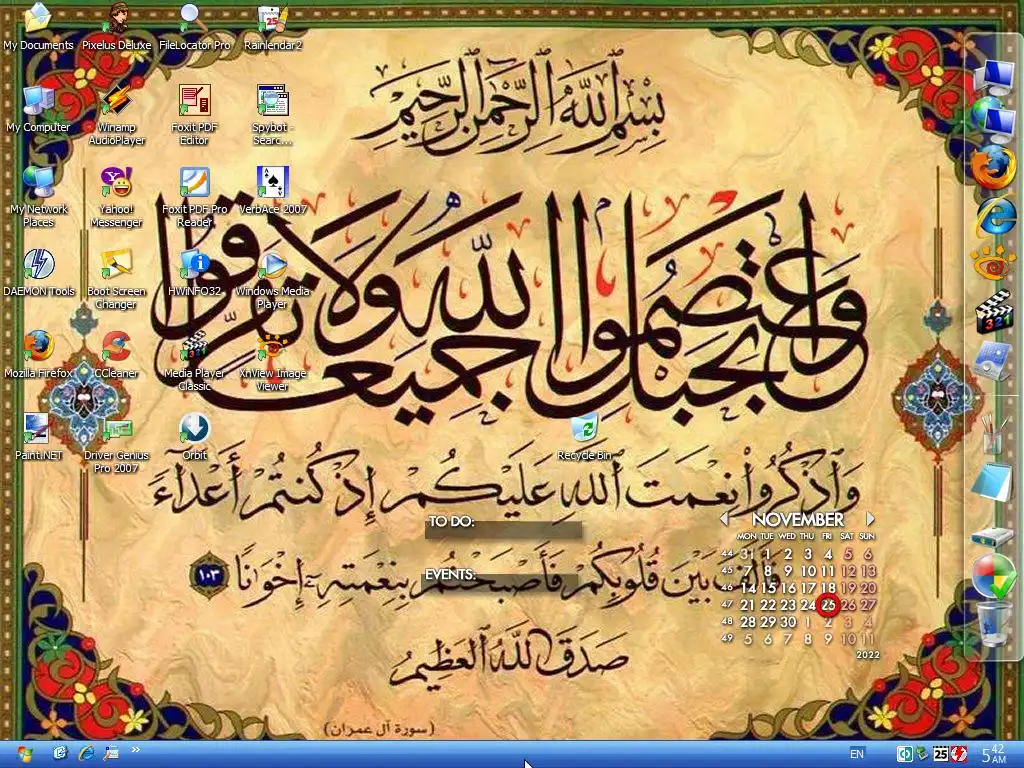 My Documents
Pixelus Deluxe
FileLocator Pro
Rainlendar2
My Computer
Winamp AudioPlayer
Foxit PDF Editor
Spybot - Searc...
My Network Places
Yahoo! Messenger
Foxit PDF Pro Reader
VerbAce 2007
DAEMON Tools
Boot Screen Changer
HWiNFO32
Windows Media Player
Mozilla Firefox
CCleaner
Media Player Classic
XnView Image Viewer
Paint.NET
Driver Genius Pro 2007
Orbit
Recycle Bin
بِسْمِ اللَّهِ الرَّحْمَنِ الرَّحِيمِ
وَاعْتَصِمُوا بِحَبْلِ اللَّهِ جَمِيعًا وَلَا تَفَرَّقُوا
وَاذْكُرُوا نِعْمَتَ اللَّهِ عَلَيْكُمْ إِذْ كُنتُمْ أَعْدَاءً
فَأَلَّفَ بَيْنَ قُلُوبِكُمْ فَأَصْبَحْتُم بِنِعْمَتِهِ إِخْوَانًا ١٠٣
صَدَقَ اللَّهُ الْعَظِيمُ
(سورة آل عمران)
TO DO:
EVENTS:
NOVEMBER
MON TUE WED THU FRI SAT SUN
44 31 1 2 3 4 5 6
45 7 8 9 10 11 12 13
46 14 15 16 17 18 19 20
47 21 22 23 24 25 26 27
48 28 29 30 1 2 3 4
49 5 6 7 8 9 10 11
2022
321
EN
25
5 42 AM